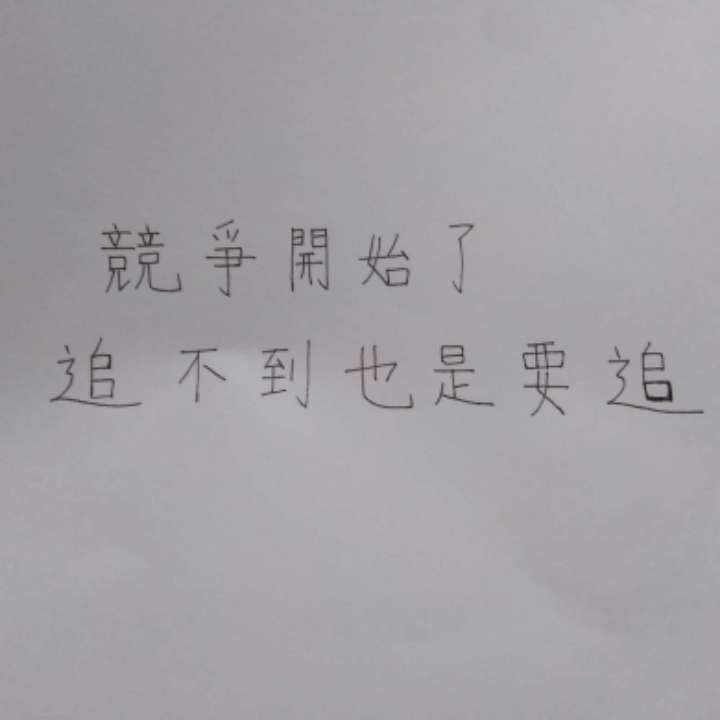 競爭開始了
追不到也是要追